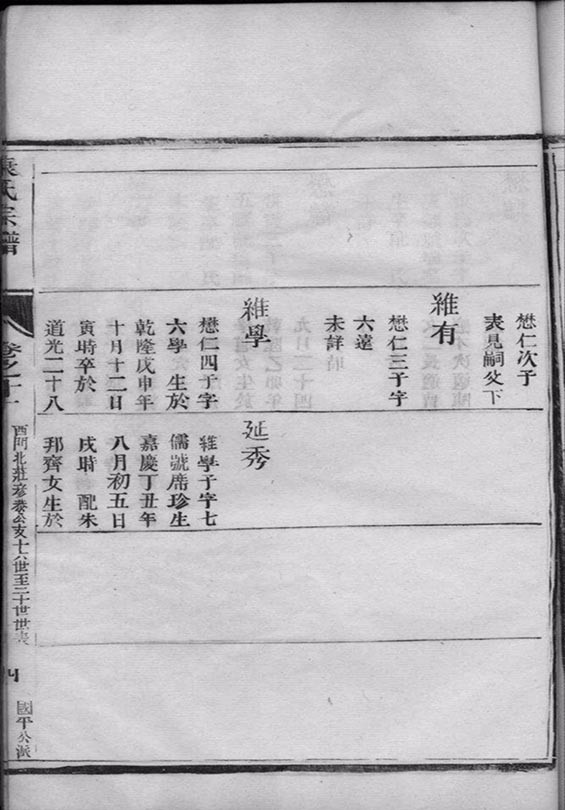 懋仁次子
表見嗣父下
維有
懋仁三子字
六遠
未詳
維學
懋仁四子字
六學 生於
乾隆戊申年
十月十二日
寅時卒於
道光二十八
延秀
維學子字七
儒號席珍生
嘉慶丁丑年
八月初五日
戌時 配朱
邦齊女生於
袁氏宗譜
卷之十一
西門北莊彥泰公支十六世至二十世世表
四
國平公派